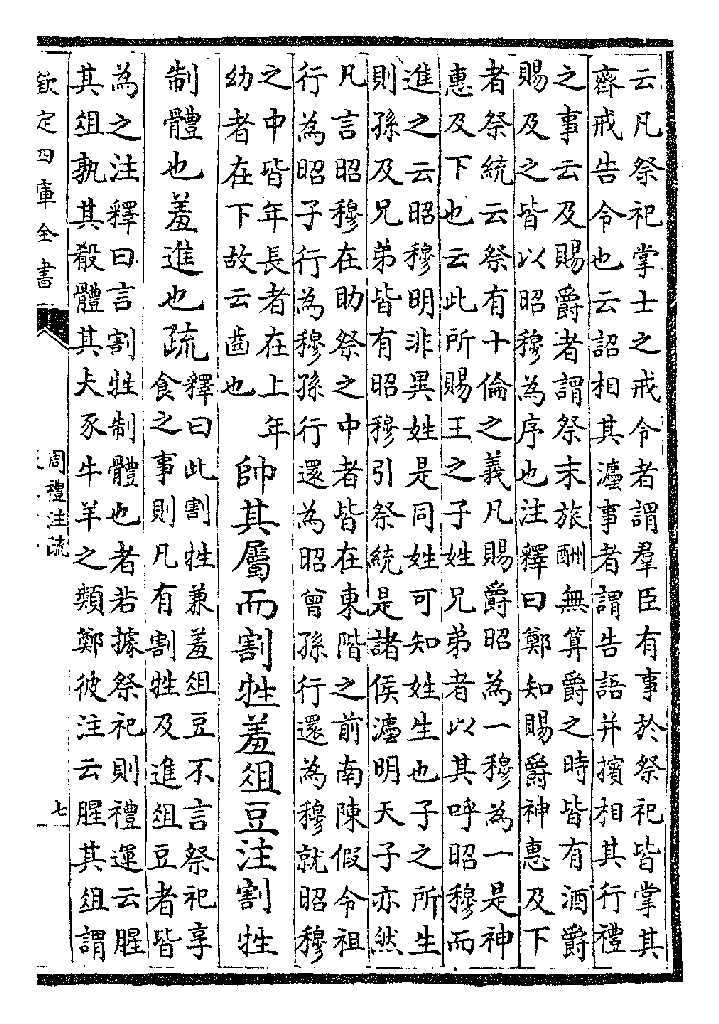 云凡祭祀掌士之戒令者謂羣臣有事於祭祀皆掌其
齊戒告令也云詔相其灋事者謂告語并擯相其行禮
之事云及賜爵者謂祭末旅酬無算爵之時皆有酒爵
賜及之皆以昭穆為序也注釋曰鄭知賜爵神惠及下
者祭統云祭有十倫之義凡賜爵昭為一穆為一是神
惠及下也云此所賜王之子姓兄弟者以其呼昭穆而
進之云昭穆明非異姓是同姓可知姓生也子之所生
則孫及兄弟皆有昭穆引祭統是諸侯灋明天子亦然
凡言昭穆在助祭之中者皆在東階之前南陳假令祖
行為昭子行為穆孫行還為昭曾孫行還為穆就昭穆
之中皆年長者在上年
幼者在下故云齒也
帥其屬而割牲羞俎豆注割牲
制體也羞進也疏
釋曰此割牲兼羞俎豆不言祭祀享
食之事則凡有割牲及進俎豆者皆
為之注釋曰言割牲制體也者若據祭祀則禮運云腥
其俎孰其殽體其犬豕牛羊之類鄭彼注云腥其俎謂
欽定四庫全書
周禮注疏
七